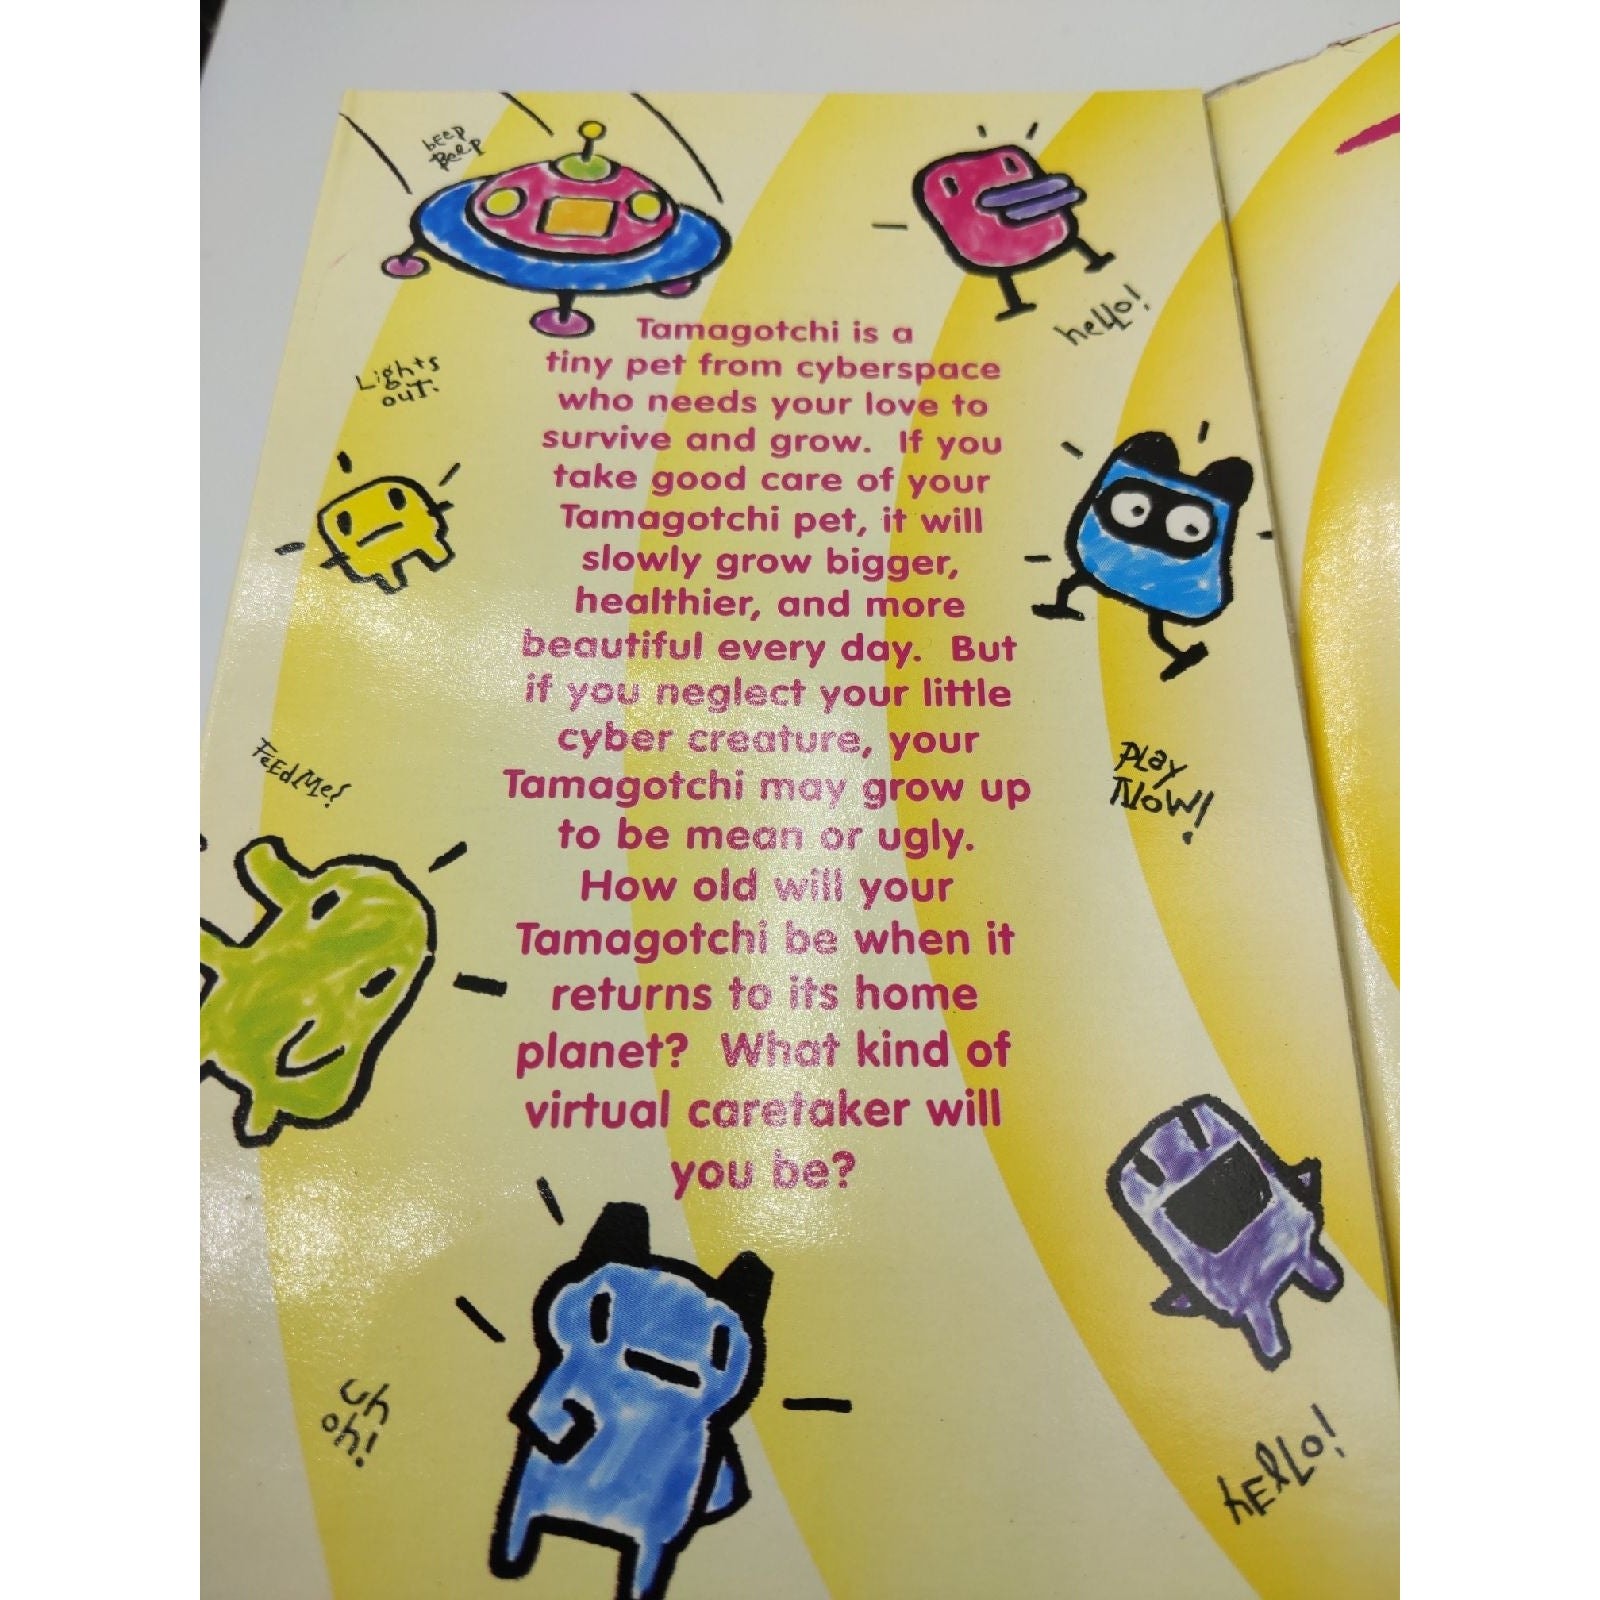 beep
Beep
hello!
Tamagotchi is a
tiny pet from cyberspace
who needs your love to
survive and grow.  If you
take good care of your
Tamagotchi pet, it will
slowly grow bigger,
healthier, and more
beautiful every day.  But
if you neglect your little
cyber creature, your
Tamagotchi may grow up
to be mean or ugly.
How old will your
Tamagotchi be when it
returns to its home
planet?  What kind of
virtual caretaker will
you be?
Lights
out.
Feed Me!
Play
Now!
uh
oh!
hEllo!